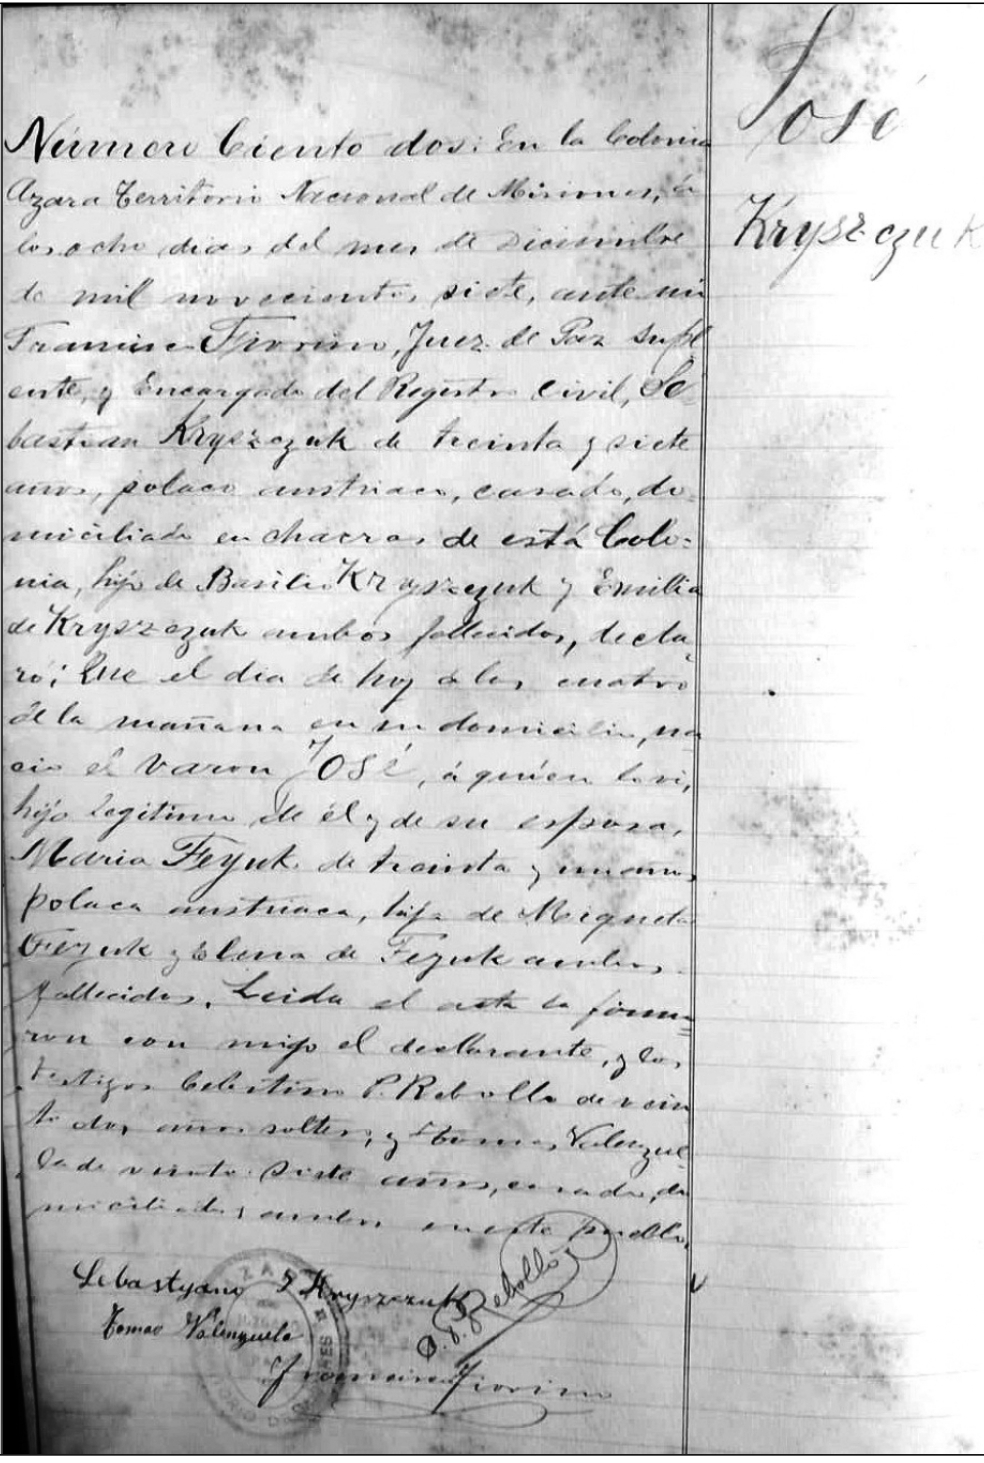 José
Kryszczuk
Número Ciento dos: En la Colonia
Azara Territorio Nacional de Misiones, á
los ocho dias del mes de Diciembre
de mil novecientos siete, ante mi
Francisco Fiorino, Juez de Paz Supl
ente, y Encargado del Registro Civil, Se
bastian Kryszczuk de treinta y siete
años, polaco austriaco, casado, do-
miciliado en chacras de está Colo-
nia, hijo de Basilio Kryszczuk y Emilia
de Kryszczuk ambos fallecidos, decla
ró; Que el dia de hoy á las cuatro
de la mañana en su domicilio, na
cio el varon José, á quien lo vi,
hijo legitimo de él y de su esposa,
Maria Feyuk de treinta y un años
polaca austriaca, hija de Miguel
Feyuk y Elena de Feyuk ambos
fallecidos. Leida el acta la firma=
ron con migo el declarante, y los
testigos Celestino P. Rebollo de vein
te dos años soltero, y Tomas Valenzue
la de veinte siete años, casado, do
miciliados ambos en este pueblo.
Sebastyano Kryszczuk
C. P. Rebollo
Tomas Valenzuela
Francisco Fiorino